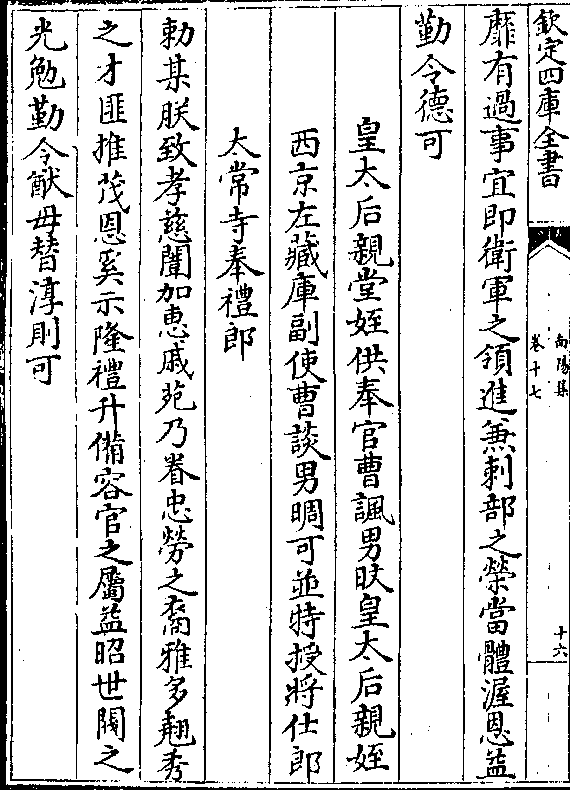 欽定四庫全書
南陽集
卷十七
十六
靡有過事宜即衛軍之領進兼刺部之榮當體渥恩益
勤令德可
皇太后親堂姪供奉官曹諷男昳皇太后親姪
西京左藏庫副使曹談男晭可並特授將仕郎
太常寺奉禮郎
勅某朕致孝慈闈加惠戚苑乃眷忠勞之裔雅多翹秀
之才匪推茂恩奚示隆禮升備容官之屬益昭世閥之
光勉勤令猷毋替淳則可